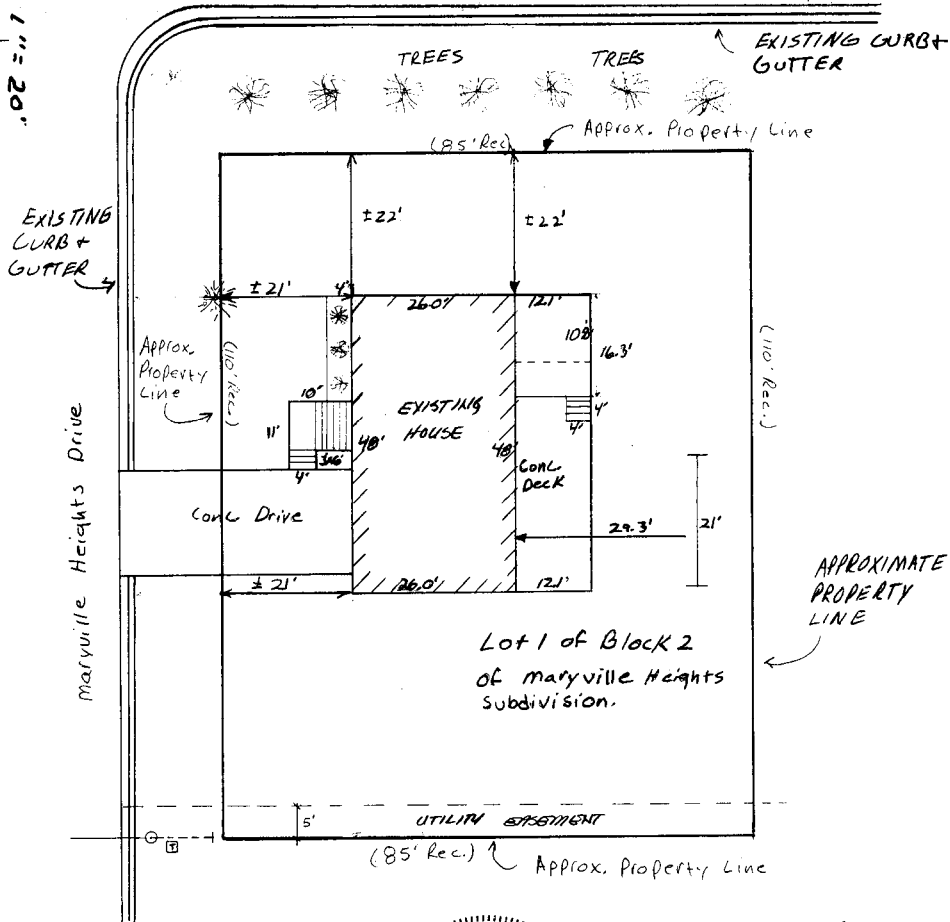 1"= 20"
EXISTING CURB +
GUTTER
TREES
TREES
(85' Rec)
Approx. Property Line
EXISTING
CURB +
GUTTER
±22'
±22'
±21'
4'
26.0'
12.1'
16.3'
Approx.
Property
Line
(110' Rec.)
(110' Rec.)
10'
11'
4'
EXISTING
HOUSE
48'
48'
4'
4'
Conc.
Deck
Maryville Heights Drive
Conc Drive
29.3'
21'
± 21'
26.0'
12.1'
APPROXIMATE
PROPERTY
LINE
Lot 1 of Block 2
of maryville Heights
Subdivision.
5'
UTILITY EASEMENT
T
(85' Rec.)
Approx. Property Line